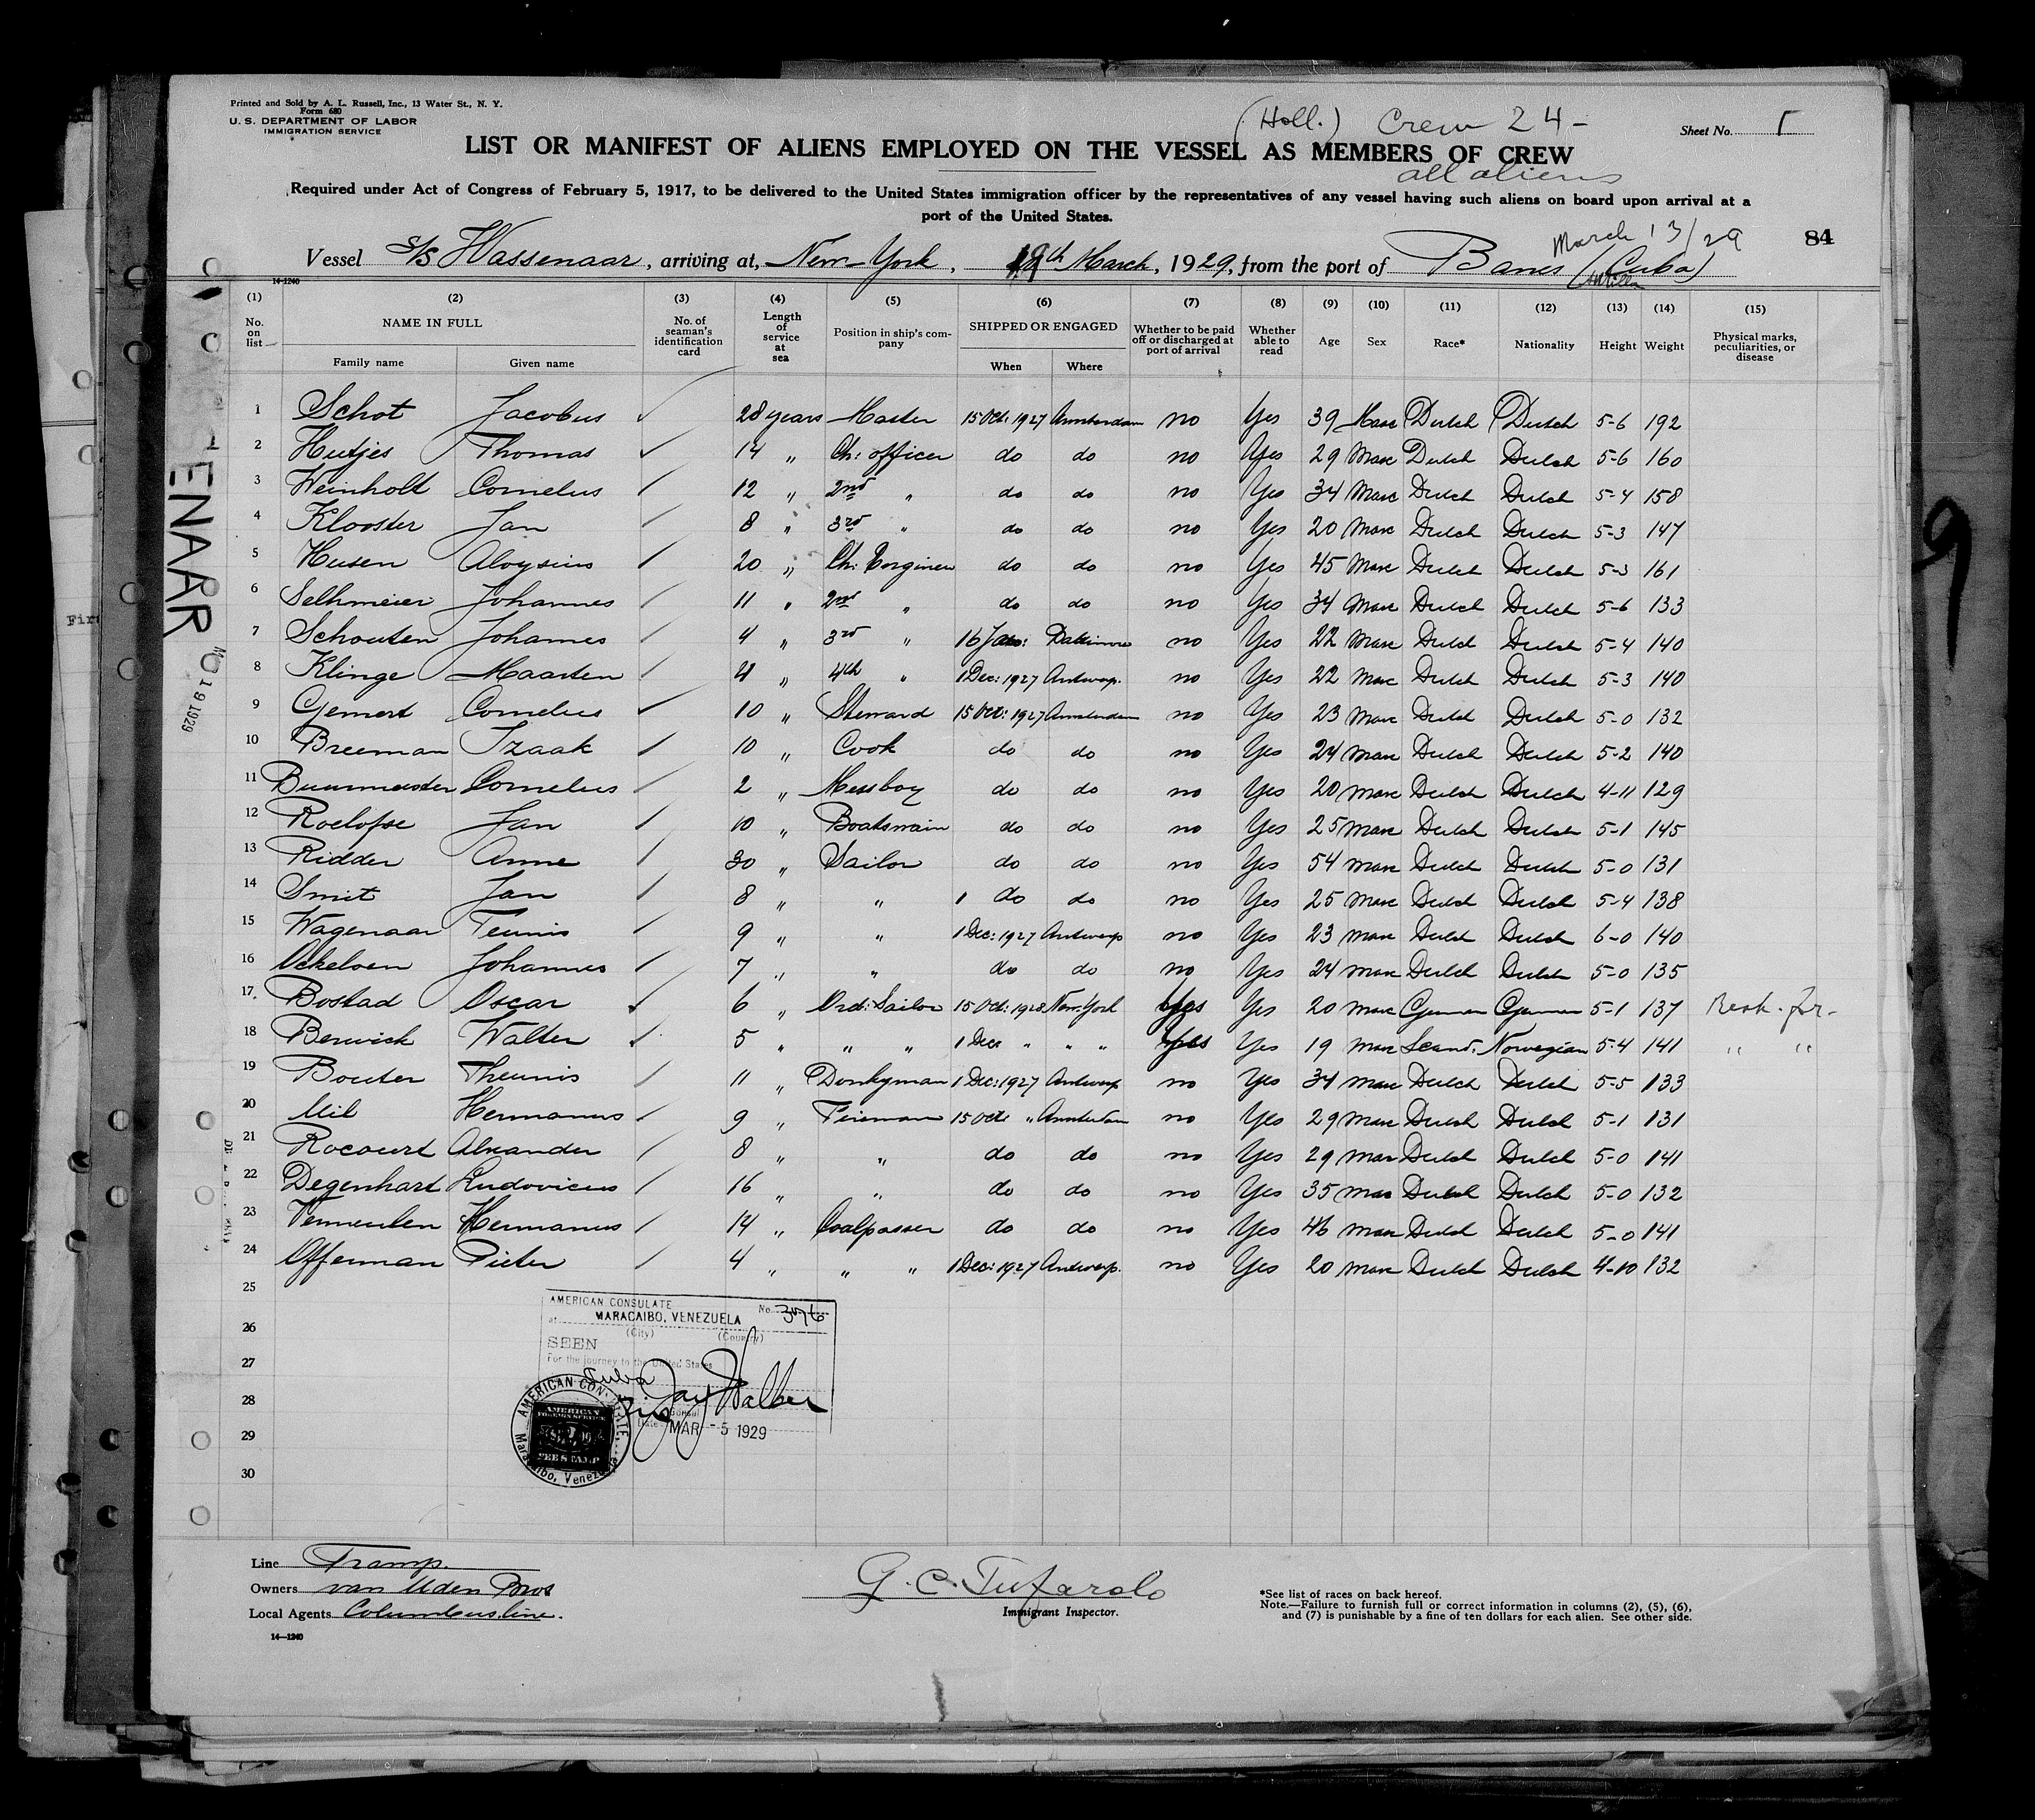 Printed and Sold by A. L. Russell, Inc., 13 Water St., N. Y.
Form 680
U. S. DEPARTMENT OF LABOR
IMMIGRATION SERVICE
(Holl.) Crew 24 -
Sheet No. 1
LIST OR MANIFEST OF ALIENS EMPLOYED ON THE VESSEL AS MEMBERS OF CREW
all aliens
Required under Act of Congress of February 5, 1917, to be delivered to the United States immigration officer by the representatives of any vessel having such aliens on board upon arrival at a
port of the United States.
March 13/29
84
Vessel S/S Wassenaar, arriving at, New-York, 19th March, 1929, from the port of Banes (Cuba)
14-1240
(1) (2) (3) (4) (5) (6) (7) (8) (9) (10) (11) (12) (13) (14) (15)
No. on list NAME IN FULL Family name Given name No. of seaman's identification card Length of service at sea Position in ship's company SHIPPED OR ENGAGED When Where Whether to be paid off or discharged at port of arrival Whether able to read Age Sex Race* Nationality Height Weight Physical marks, peculiarities, or disease
1 Schot Jacobus 28 years Master 15 Oct: 1927 Amsterdam no Yes 39 Masc Dutch Dutch 5-6 192
2 Hutjes Thomas 14 " Ch: officer do do no Yes 29 Masc Dutch Dutch 5-6 160
3 Weinholt Cornelus 12 " 2nd " do do no Yes 34 Masc Dutch Dutch 5-4 158
4 Klooster Jan 8 " 3rd " do do no Yes 20 Masc Dutch Dutch 5-3 147
5 Husen Aloysius 20 " Ch: Engineer do do no Yes 45 Masc Dutch Dutch 5-3 161
6 Selhmeier Johannes 11 " 2nd " do do no Yes 34 Masc Dutch Dutch 5-6 133
7 Schouten Johannes 4 " 3rd " 16 Jan: Baltimore no Yes 22 Masc Dutch Dutch 5-4 140
8 Klinge Maarten 4 " 4th " 1 Dec: 1927 Antwerp. no Yes 22 Masc Dutch Dutch 5-3 140
9 Gemert Cornelus 10 " Steward 15 Oct: 1927 Amsterdam no Yes 23 Masc Dutch Dutch 5-0 132
10 Breeman Izaak 10 " Cook do do no Yes 24 Masc Dutch Dutch 5-2 140
11 Buurmeester Cornelus 2 " Messboy do do no Yes 20 Masc Dutch Dutch 4-11 129
12 Roelofse Jan 10 " Boatswain do do no Yes 25 Masc Dutch Dutch 5-1 145
13 Ridder Anne 30 " Sailor do do no Yes 54 Masc Dutch Dutch 5-0 131
14 Smit Jan 8 " " do do no Yes 25 Masc Dutch Dutch 5-4 138
15 Wagenaar Teunis 9 " " 1 Dec: 1927 Antwerp no Yes 23 Masc Dutch Dutch 6-0 140
16 Ockeloen Johannes 7 " " do do no Yes 24 Masc Dutch Dutch 5-0 135
17 Bostad Oscar 6 " Ord: Sailor 15 Oct: 1928 New-York Yes Yes 20 Masc German German 5-1 137
18 Berwick Walter 5 " " " 1 Dec " " " Yes Yes 19 Masc Scand. Norwegian 5-4 141 " "
19 Bouter Theunis 11 " Donkyman 1 Dec: 1927 Antwerp no Yes 34 Masc Dutch Dutch 5-5 133
20 Mil Hermanus 9 " Fireman 15 Oct " Amsterdam no Yes 29 Masc Dutch Dutch 5-1 131
21 Rocourt Alexander 8 " " do do no Yes 29 Masc Dutch Dutch 5-0 141
22 Degenhart Ludovicus 16 " " do do no Yes 35 Masc Dutch Dutch 5-0 132
23 Vermeulen Hermanus 14 " Coalpasser do do no Yes 46 Masc Dutch Dutch 5-0 141
24 Offerman Pieter 4 " " " 1 Dec: 1927 Antwerp. no Yes 20 Masc Dutch Dutch 4-10 132
25
26
27
28
29
30
ENAAR
19 1929
9
AMERICAN CONSULATE No. 3076
at MARACAIBO, VENEZUELA
(City) (Country)
SEEN
For the journey to the United States
Cuba
Jay Walker
Consul
Date MAR - 5 1929
AMERICAN CONSULATE
Maracaibo, Venezuela
AMERICAN FOREIGN SERVICE
FEE STAMP
Line Tramp.
Owners van Uden Bros
Local Agents Columbus line.
14-1240
G. C. Tufarolo
Immigrant Inspector.
*See list of races on back hereof.
Note.—Failure to furnish full or correct information in columns (2), (5), (6),
and (7) is punishable by a fine of ten dollars for each alien. See other side.